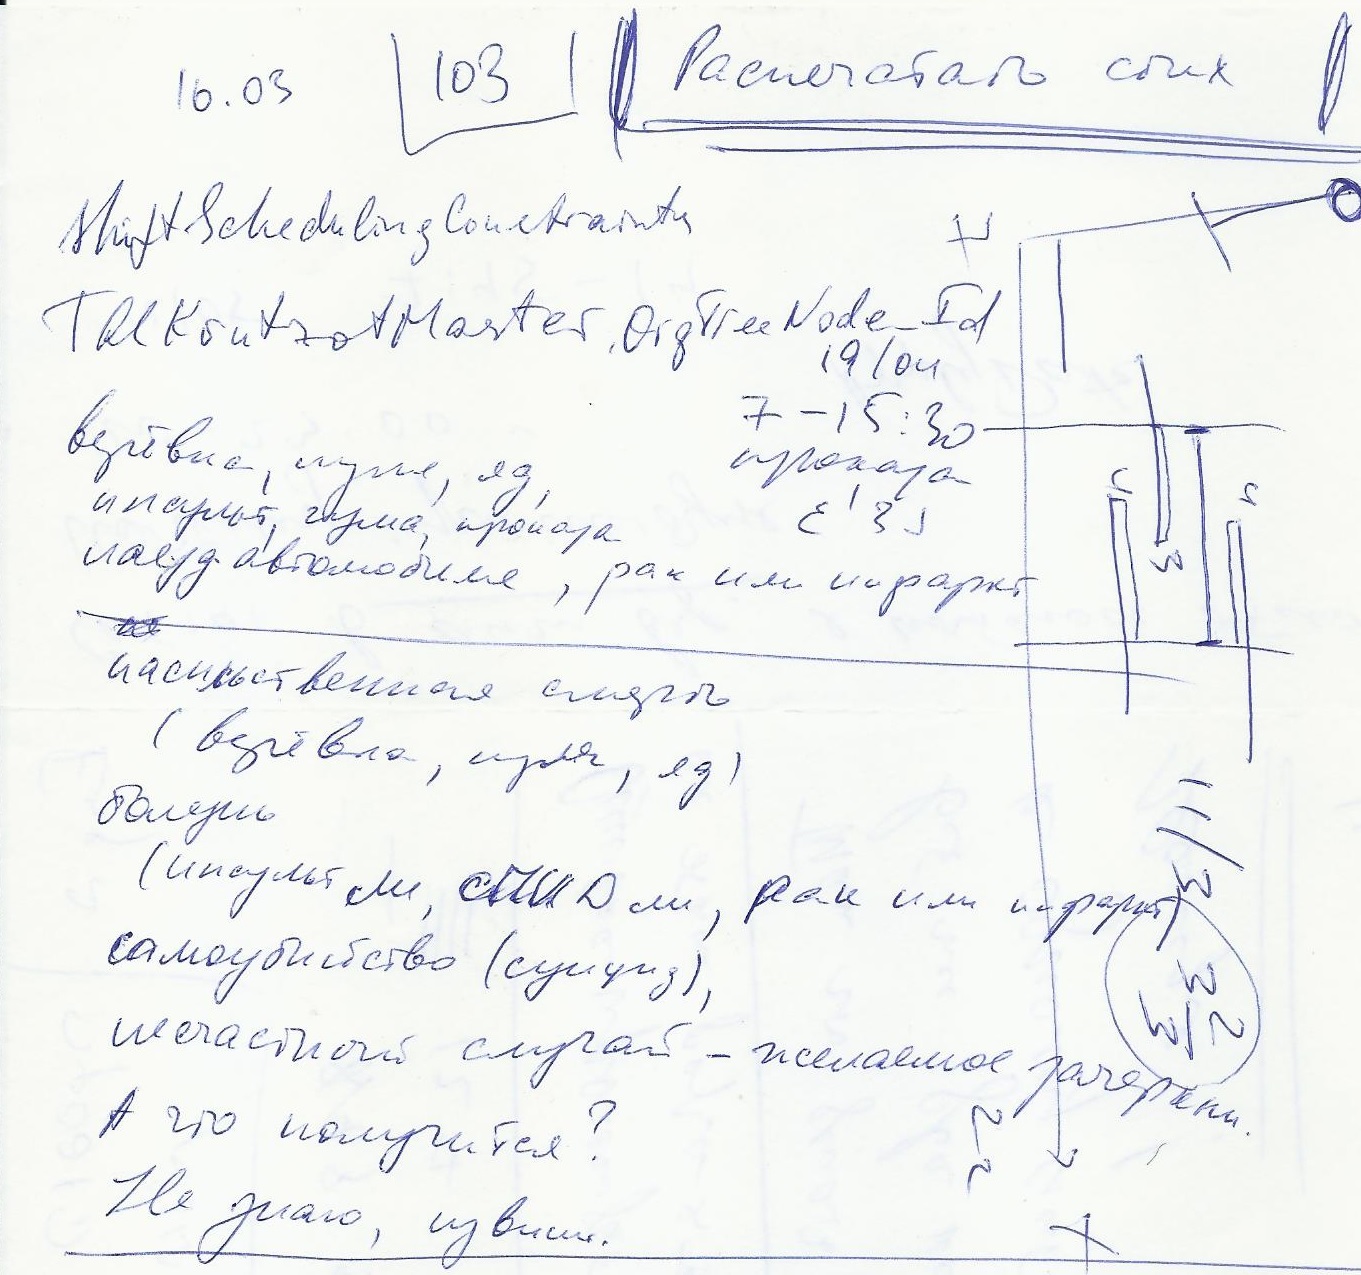 16.03 103 Распечатать стих
ShiftSchedulingConstraints
TblKontrotMaster.OrgTreeNode_Id
19/04
7 – 15:30
верёвка, пуля, яд,
проказа
инсульт, чума, проказа
наезд автомобиля, рак или инфаркт
насильственная смерть
(верёвка, пуля, яд)
болезнь
(инсульт ли, СПИД ли, рак или инфаркт
самоубийство (суицид),
несчастный случай – желаемое зачеркни.
А что получится?
Не знаю, извини.
11/3
3 2/3